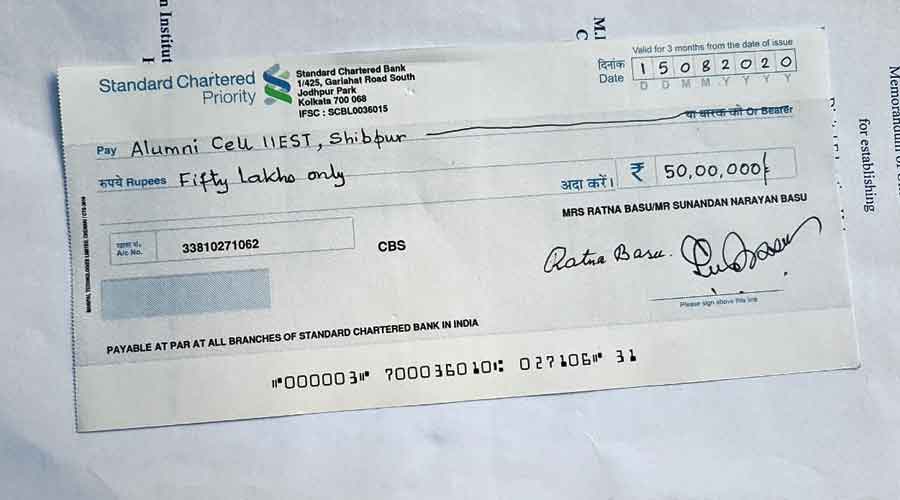 n Institut
M.I
C
Memorandum of
for establishing
Standard Chartered
Priority
Standard Chartered Bank
1/425, Gariahat Road South
Jodhpur Park
Kolkata 700 068
IFSC : SCBL0036015
Valid for 3 months from the date of issue
दिनांक
Date 15082020
D D M M Y Y Y Y
Pay Alumni Cell IIEST, Shibpur या धारक को Or Bearer
रुपये Rupees Fifty Lakhs only
अदा करें। ₹ 50,00,000/-
MRS RATNA BASU/MR SUNANDAN NARAYAN BASU
खाता सं.
A/c No. 33810271062 CBS
Ratna Basu.
Please sign above this line
PAYABLE AT PAR AT ALL BRANCHES OF STANDARD CHARTERED BANK IN INDIA
⑈000003⑈ 700036010⑆ 027106⑈ 31